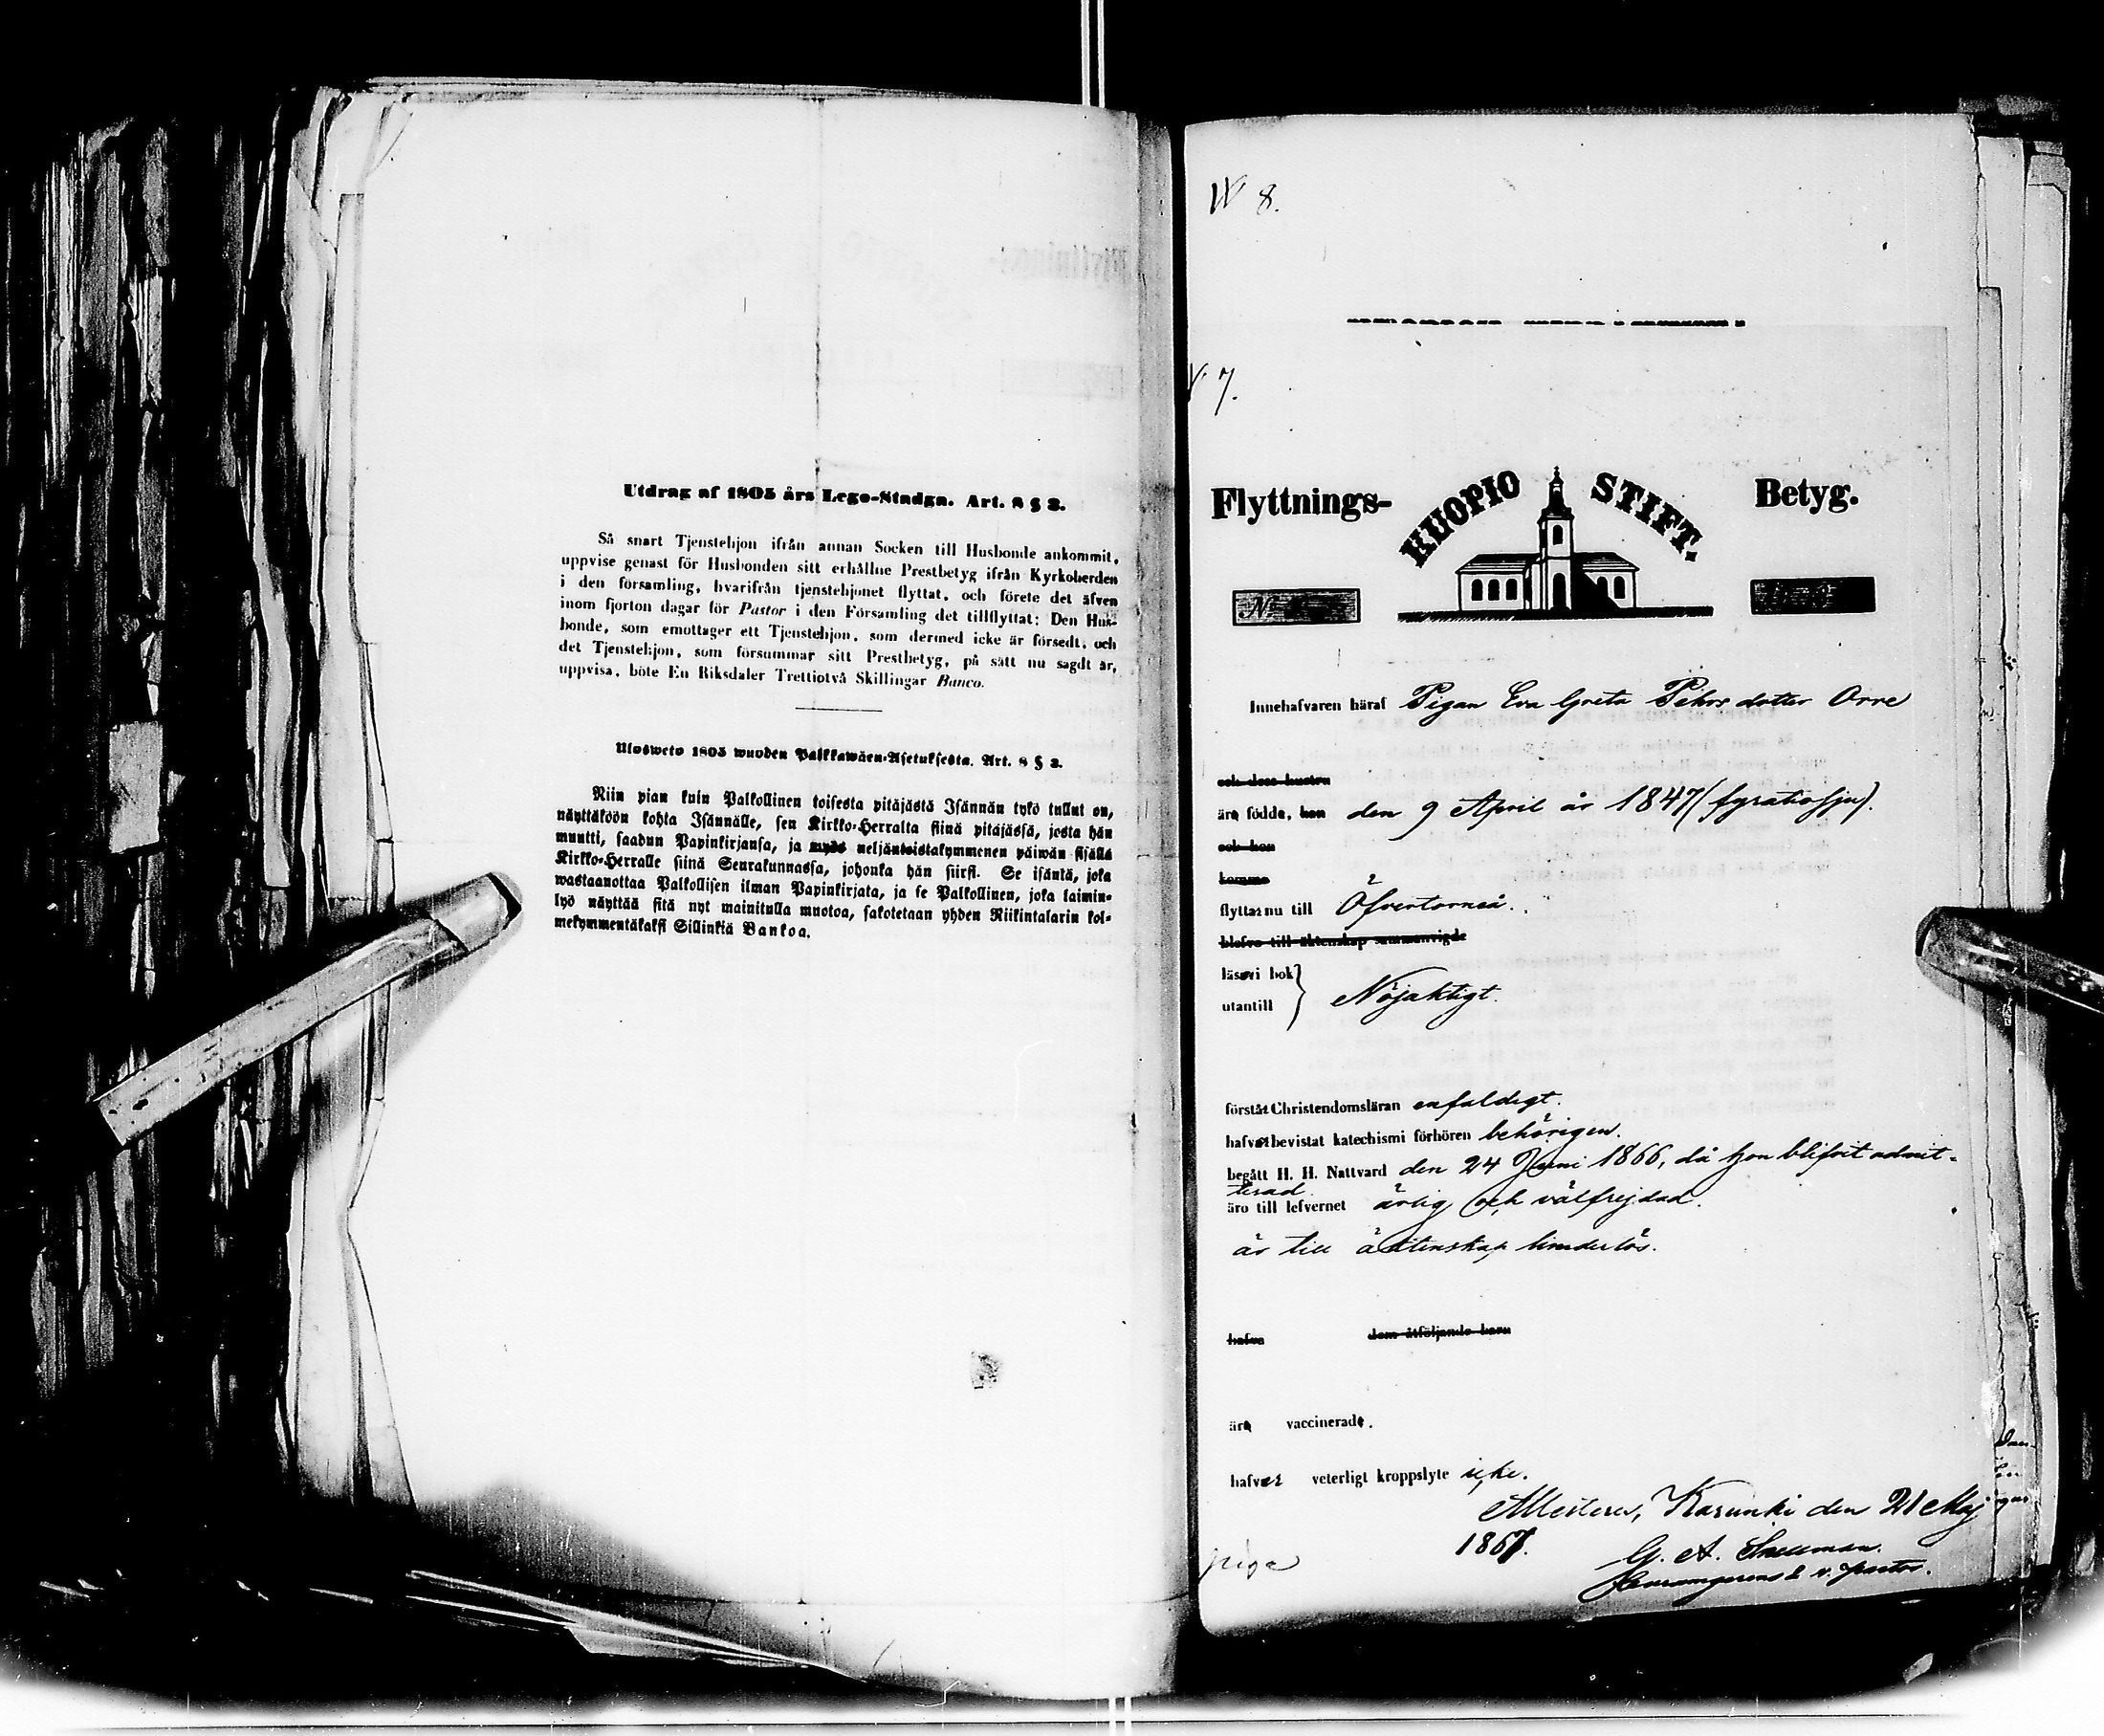 Utdrag af 1805 års Lego-Stadga. Art. 8 § 2.
Så snart Tjenstehjon ifrån annan Socken till Husbonde ankommit,
uppvise genast för Husbonden sitt erhållne Prestbetyg ifrån Kyrkoherden
i den församling, hvarifrån tjenstehjonet flyttat, och förete det äfven
inom fjorton dagar för Pastor i den Församling det tillflyttat: Den Hus-
bonde, som emottager ett Tjenstehjon, som dermed icke är försedt, och
det Tjenstehjon, som försummar sitt Prestbetyg, på sätt nu sagdt är,
uppvisa, böte En Riksdaler Trettiotvå Skillingar Banco.
Ulosweto 1805 wuoden Palkkawäen-Asetuksesta. Art. 8 § 2.
Niin pian kuin Palkollinen toisesta pitäjästä Isännän tykö tullut on,
näyttäköön kohta Isännälle, sen Kirkko-Herralta siinä pitäjässä, josta hän
muutti, saadun Papinkirjansa, ja myös neljäntoistakymmenen päiwän sisällä
Kirkko-Herralle siinä Seurakunnassa, johonka hän siirsi. Se isäntä, joka
wastaanottaa Palkollisen ilman Papinkirjata, ja se Palkollinen, joka laimin-
lyö näyttää sitä nyt mainitulla muotoa, sakotetaan yhden Riikintalarin kol-
mekymmentäkaksi Sillinkiä Bankoa.
N 8.
N 7.
Flyttnings- KUOPIO STIFT. Betyg.
N:
Innehafvaren häraf Pigan Eva Greta Pehrsdotter Orre
och dess hustru
äro födde, han den 9 April år 1847 (fyratiosju).
och hon
komma
flyttar nu till Öfvertorneå.
blefvo till äktenskap sammanvigde
läser i bok
utantill } Nöjaktigt.
förstår Christendomsläran enfaldigt.
hafver bevistat katechismi förhören behörigen.
begått H. H. Nattvard den 24 Juni 1866, då hon blifvit admit-
terad
äro till lefvernet ärlig och välfrejdad.
är till äktenskap hinderlös.
hafva dem åtföljande barn
äro vaccinerade.
hafver veterligt kroppslyte icke.
Attesterar, Karunki den 21 Maj
1867.
G. A. Snellman.
v. pastor.
piga